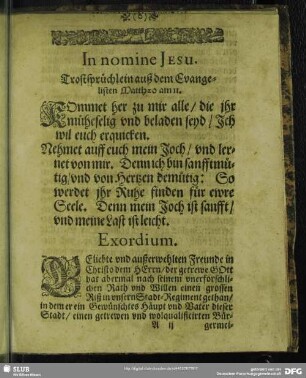 In nomine JESU.
Trostsprüchlein auß dem Evange-
listen Matthæo am 11.
KOmmet her zu mir alle/ die jhr
müheselig vnd beladen seyd/ Ich
wil euch erquicken.
Nehmet auff euch mein Joch/ vnd ler-
net von mir. Denn ich bin sanfftmü-
tig/ vnd von Hertzen demütig: So
werdet jhr Ruhe finden für ewre
Seele. Denn mein Joch ist sanfft/
vnd meine Last ist leicht.
Exordium.
GEliebte vnd ausserwehlten Freunde in
Christo dem HErrn/ der getrewe GOtt
hat abermal nach seinem vnerforschli-
chen Rath vnd Willen einen grossen
Riß in vnserm Stadt-Regiment gethan/
in dem er ein Gewünschtes Häupt vnd Vater dieser
Stadt/ einen getrewen vnd wolqualificirten Bür-
A ij germei-
SLUB